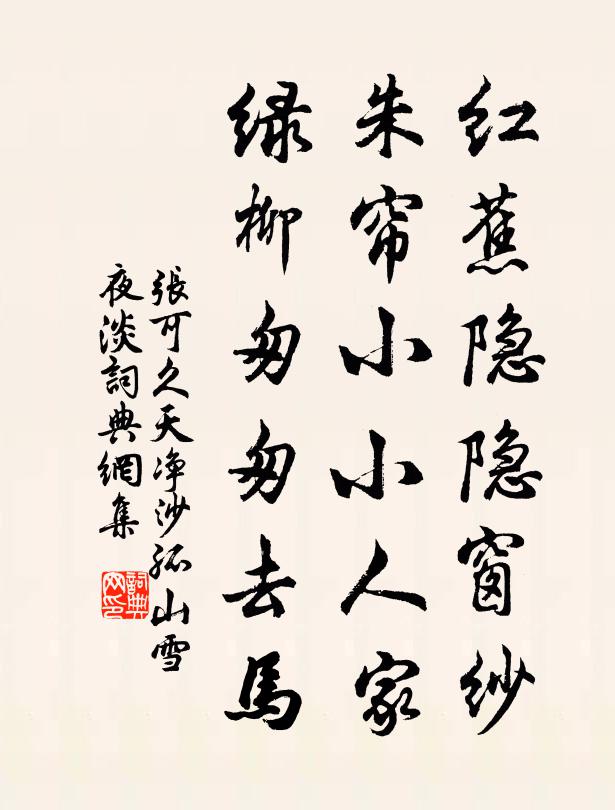 红蕉隐隐窗纱
朱帘小小人家
绿柳匆匆去馬
張可久天净沙孤山雪
夜淡詞典網集
詞典网印